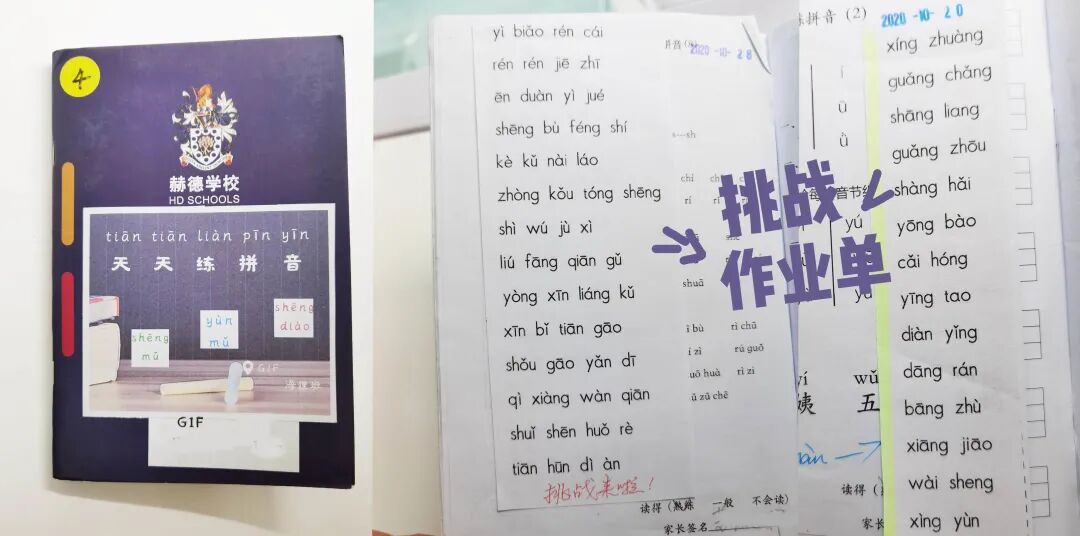 4
赫德学校
HD SCHOOLS
tiān tiān liàn pīn yīn
天天练拼音
shēng mǔ
yùn mǔ
shēng diào
G1F
G1F
yì biǎo rén cái
rén rén jiē zhī
ēn duàn yì jué
shēng bù féng shí
kè kǔ nài láo
zhòng kǒu tóng shēng
shì wú jù xì
liú fāng qiān gǔ
yòng xīn liáng kǔ
xīn bǐ tiān gāo
shǒu gāo yǎn dī
qì xiàng wàn qiān
shuǐ shēn huǒ rè
tiān hūn dì àn
挑战来啦！
2020-10-28
s—sh
shuā
ī bù rì chū
í zì rú guǒ
uō huà rì zi
ū zū chē
读得（熟练 一般 不会读）
家长签名
挑战
作业单
拼音（2）
2020-10-20
í
ü
ǜ
每
音节
yú
yí wǔ
姨 五
读得（
家长
xíng zhuàng
guǎng chǎng
shāng liang
guǎng zhōu
shàng hǎi
yōng bào
cǎi hóng
yīng tao
diàn yǐng
dāng rán
bāng zhù
xiāng jiāo
wài sheng
xìng yùn